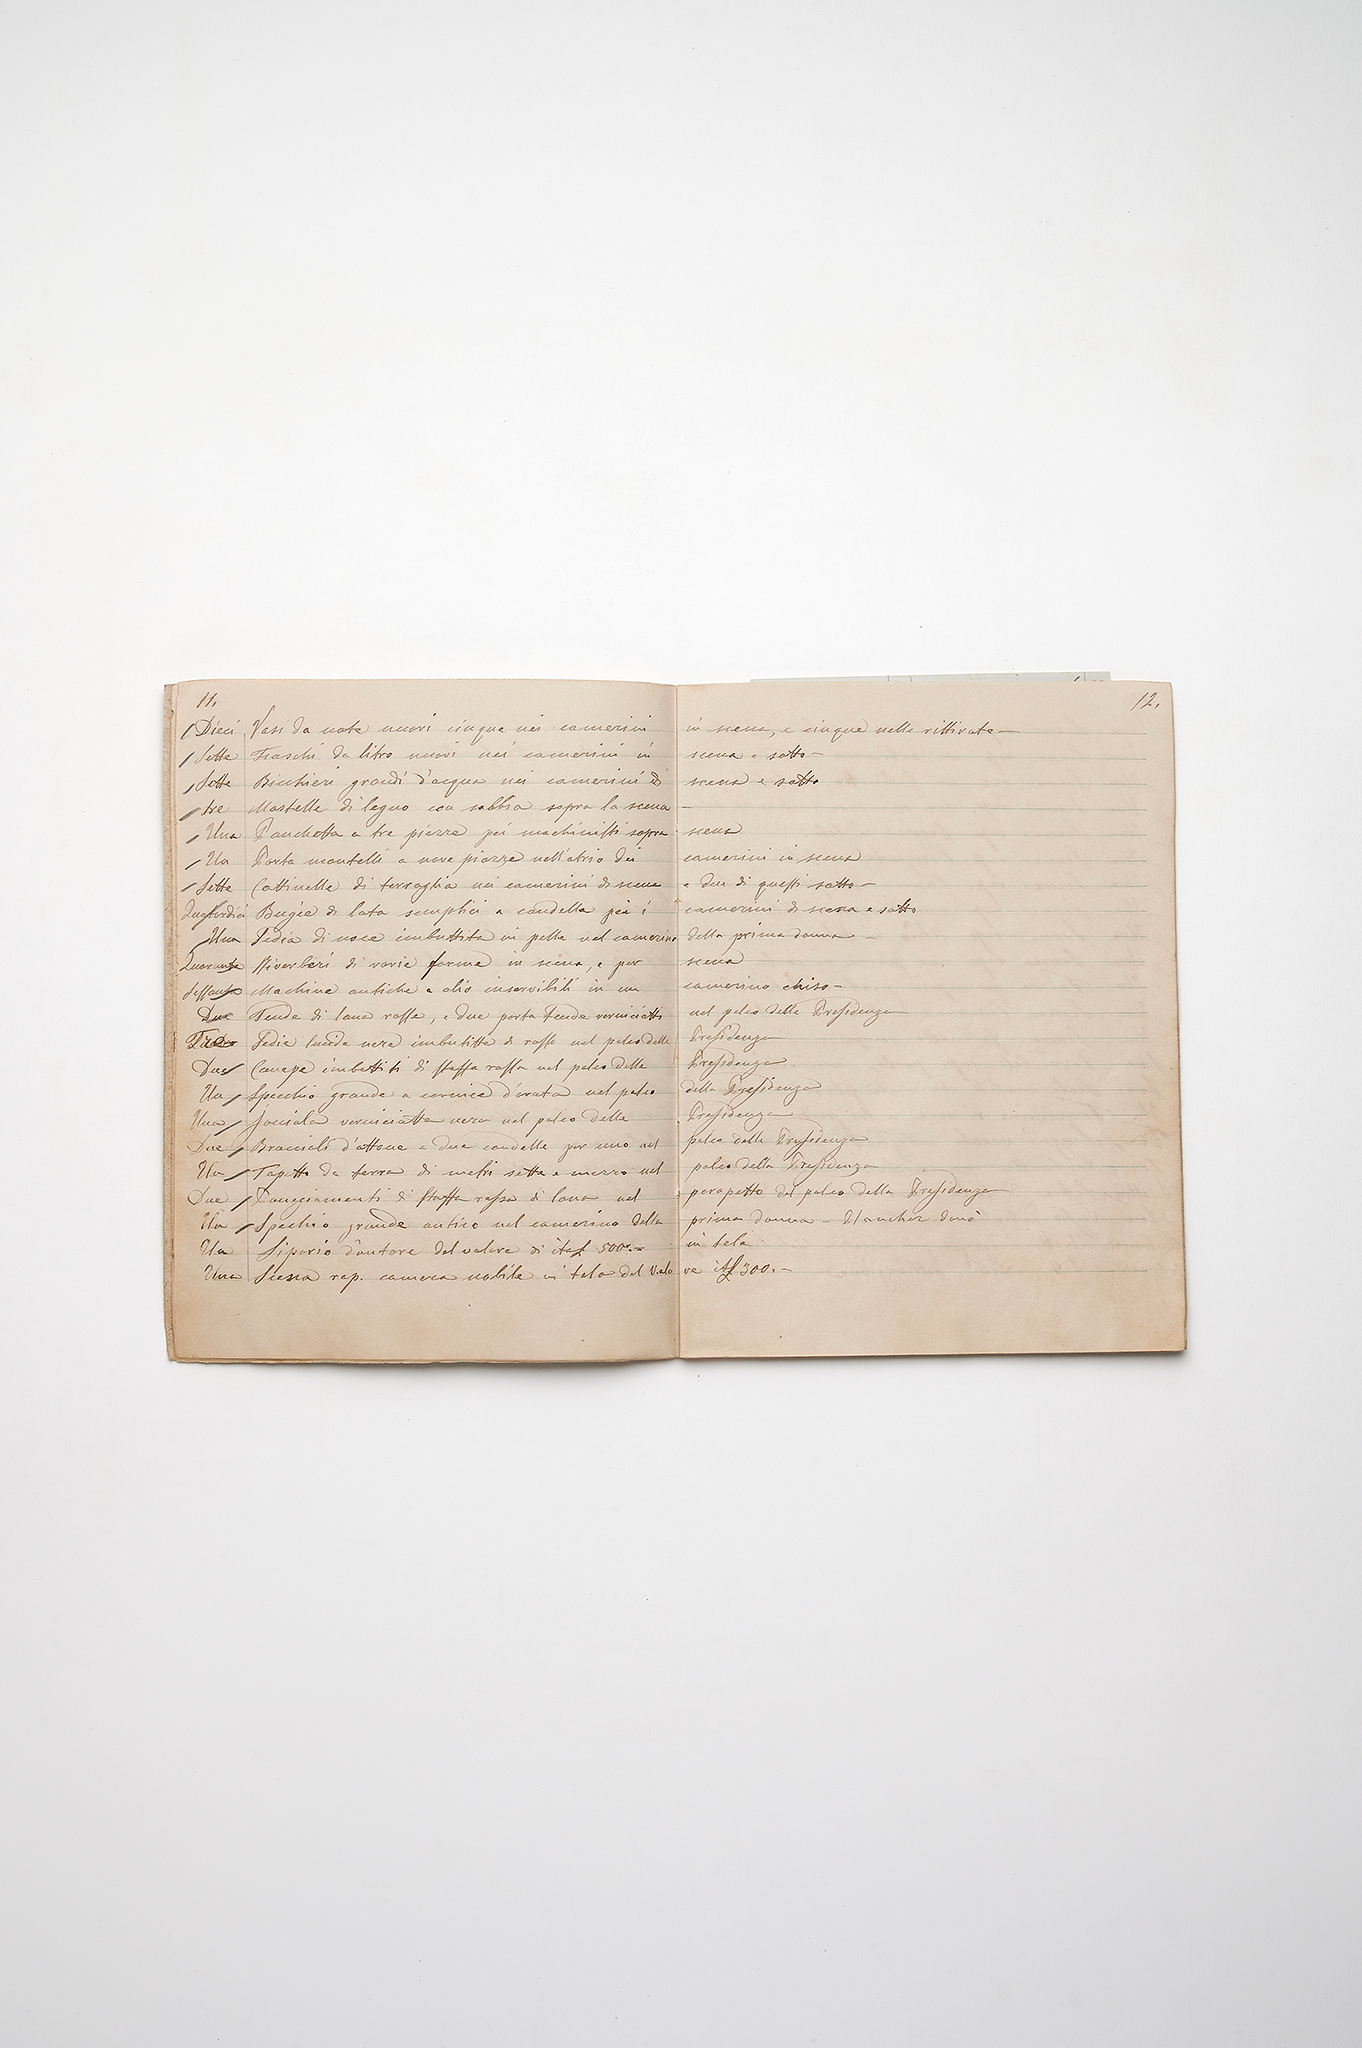 11. 12.
Dieci Vasi da notte nuovi cinque nei camerini in scena, e cinque nelle rittirate—
Sette Fiaschi da litro nuovi nei camerini in scena e sotto—
Sette Bicchieri grandi d'acqua nei camerini di scena e sotto
tre Mastelle di legno con sabbia sopra la scena —
Una Panchetta a tre piazze pei machinisti sopra scena
Un Porta mantelli a nove piazze nell'atrio dei camerini in scena
Sette Cattinelle di terraglia nei camerini di scena e due di questi sotto—
Bugie di lata semplici a candella pei i camerini di scena e sotto
Una Sedia di noce imbuttita in pelle nel camerino della prima donna —
Quaranta Riverberi di varie forme in scena, e per scena
Sessanta Machine antiche a olio inservibili in un camerino chiso—
Due Tende di lana rosse, e due porta Tende verniciatti nel palco della Presidenza
Sedie lucide nere imbutitte di rosso nel palco della Presidenza
Due Canape imbottiti di stoffa rossa nel palco della Presidenza
Un Specchio grande a cornice d'orata nel palco della Presidenza
Una verniciatta nera nel palco della Presidenza
Due Braccioli d'attone a due candelle per uno nel palco della Presidenza
Un Tapetto da terra di metri sette e mezzo nel palco della Presidenza
Due di stoffa rossa di lana nel parapetto del palco della Presidenza
Un Spechio grande antico nel camerino della prima donna —
Un Sipario d'autore del valore di ital 500.— in tela
Una Scena rap. camera nobile in tela del Valo re ital 300.—